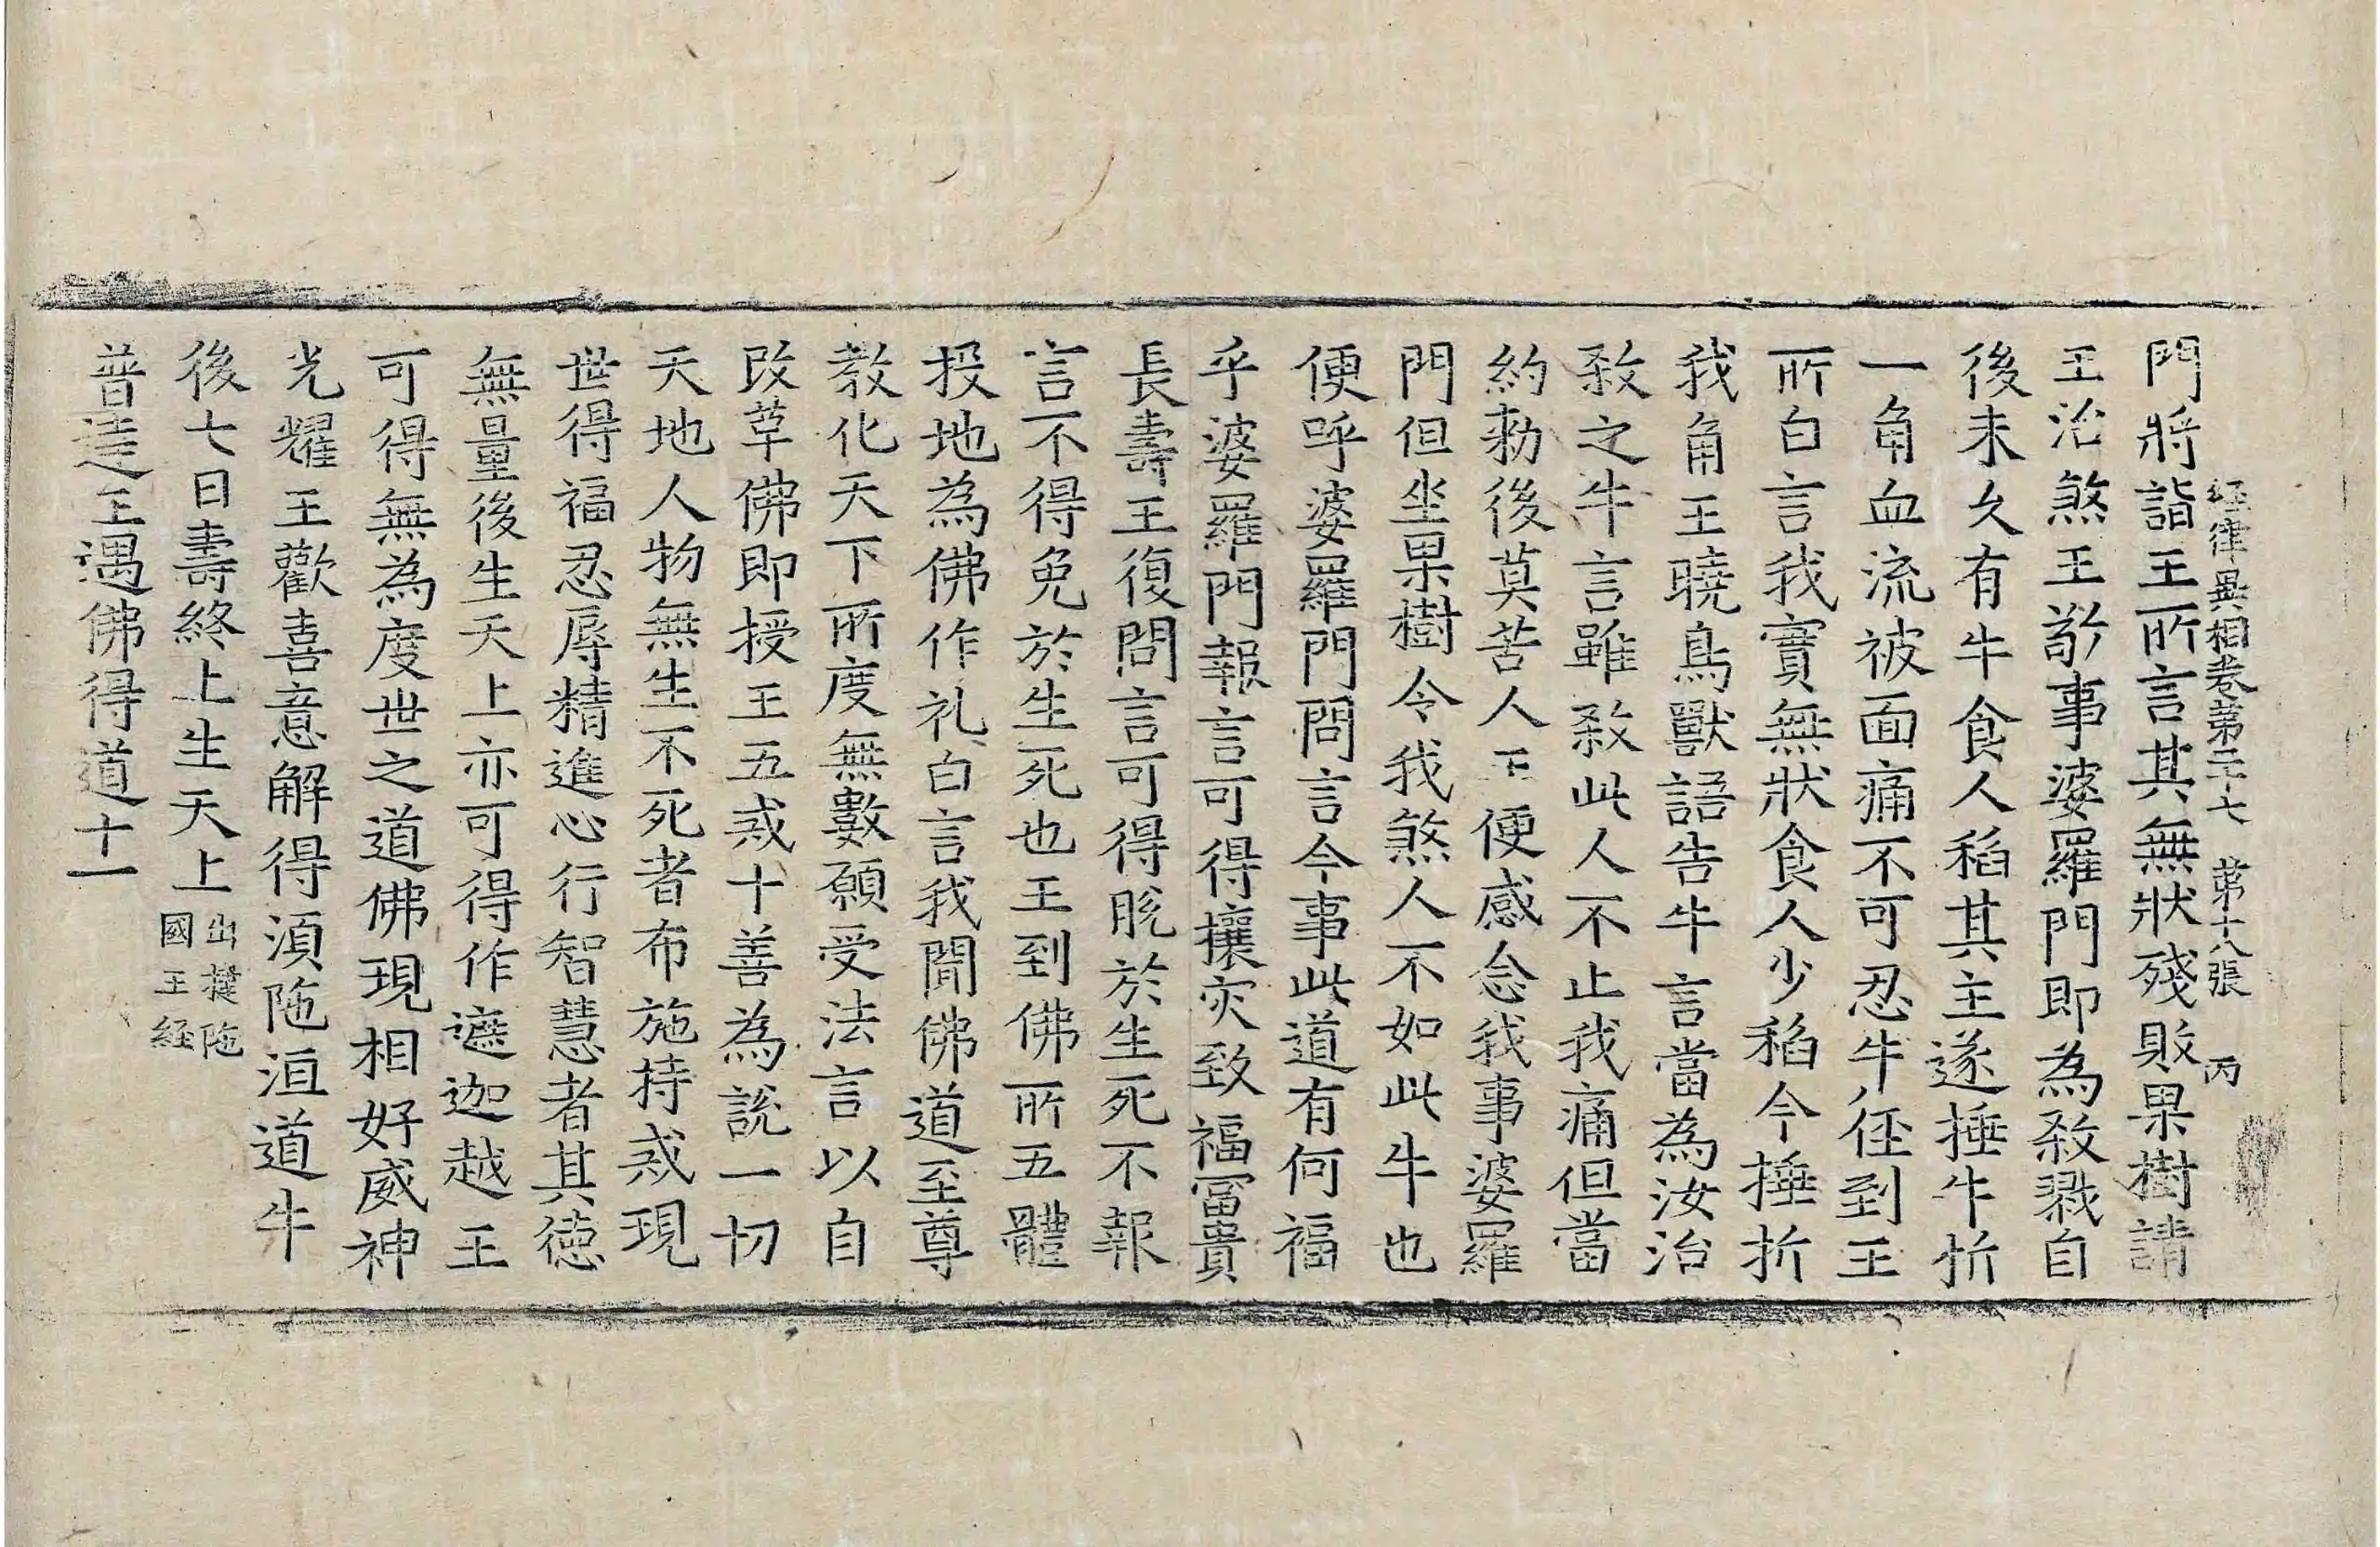 経律異相卷第二十七 第十八張 丙
門將詣王所言其無狀殘敗果樹請
王治煞王敬事婆羅門即為敎戮自
後未久有牛食人稻其主遂捶牛折
一角血流被面痛不可忍牛徑到王
所白言我實無狀食人少稻今捶折
我角王曉鳥獸語告牛言當為汝治
敎之牛言雖敎此人不止我痛但當
約勑後莫苦人王便感念我事婆羅
門但坐果樹令我煞人不如此牛也
便呼婆羅門問言今事此道有何福
乎婆羅門報言可得攘灾致福冨貴
長壽王復問言可得脫於生死不報
言不得免於生死也王到佛所五體
投地為佛作礼白言我聞佛道至尊
教化天下所度無數願受法言以自
改革佛即授王五戒十善為說一切
天地人物無生不死者布施持戒現
世得福忍辱精進心行智慧者其徳
無量後生天上亦可得作遮迦越王
可得無為度世之道佛現相好威神
光耀王歡喜意解得湏陁洹道牛
後七日壽終上生天上
出揵陁
國王経
普達王遇佛得道十一